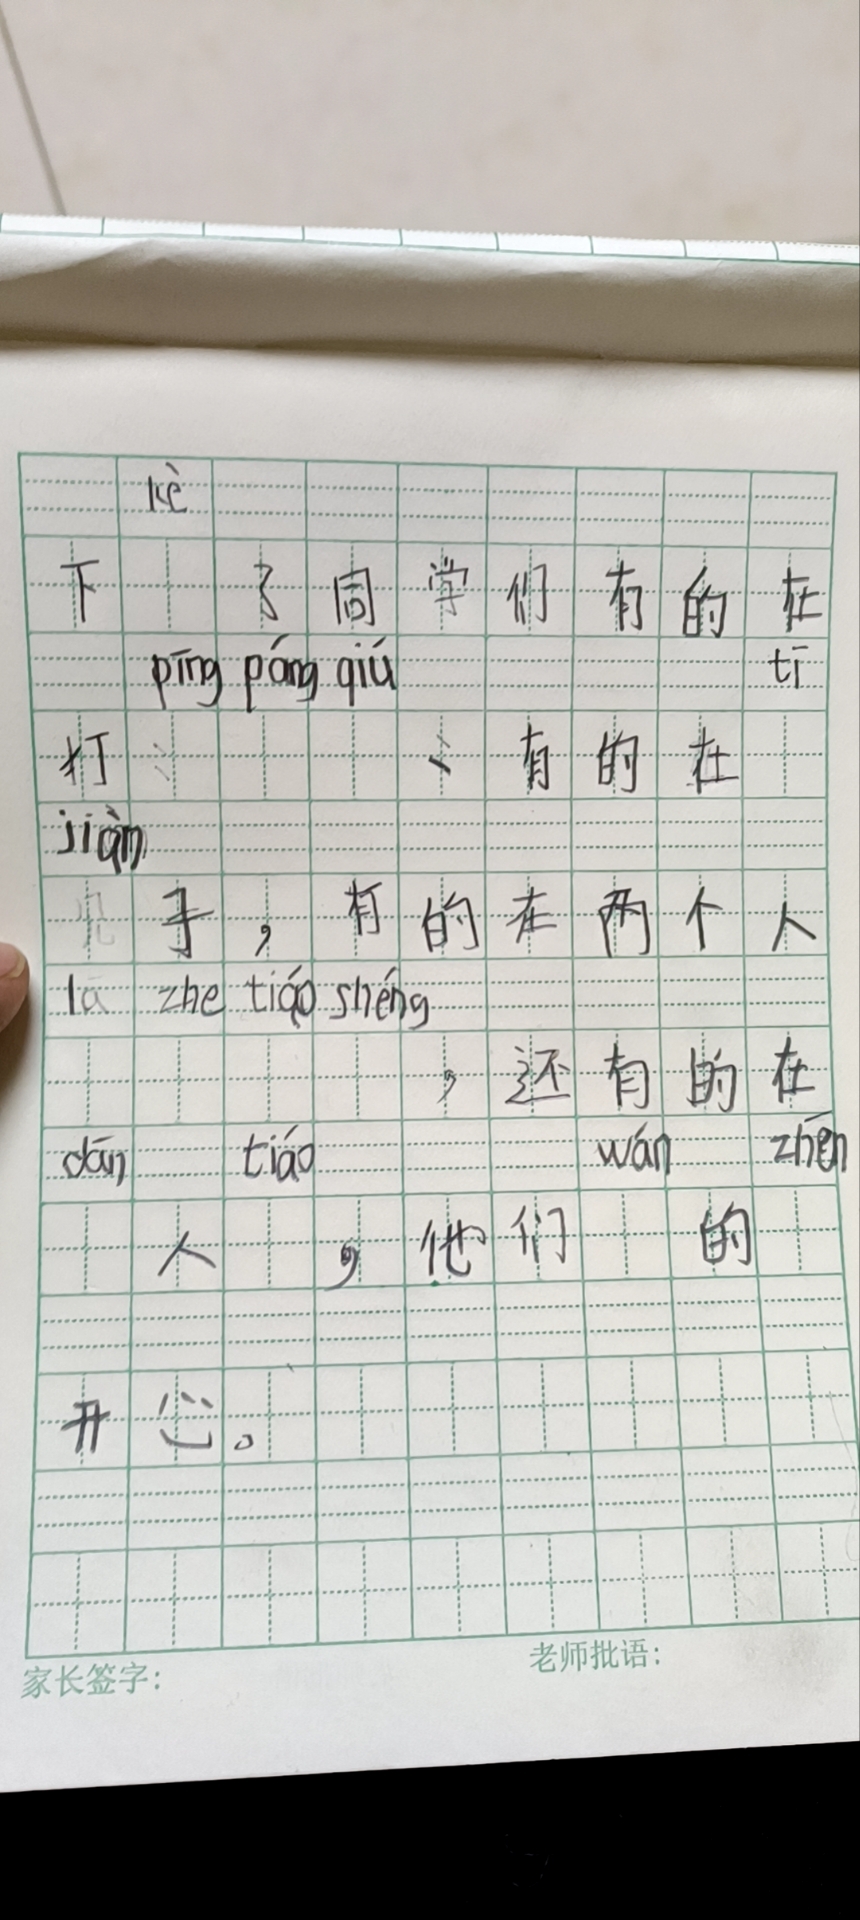 kè
下了同学们有的在
pīng póng qiú tī
打、有的在
jiàn
手,有的在两个人
lā zhe tiáo shéng
,还有的在
dān tiáo wán zhēn
人,他们的
开心。
家长签字:
老师批语: